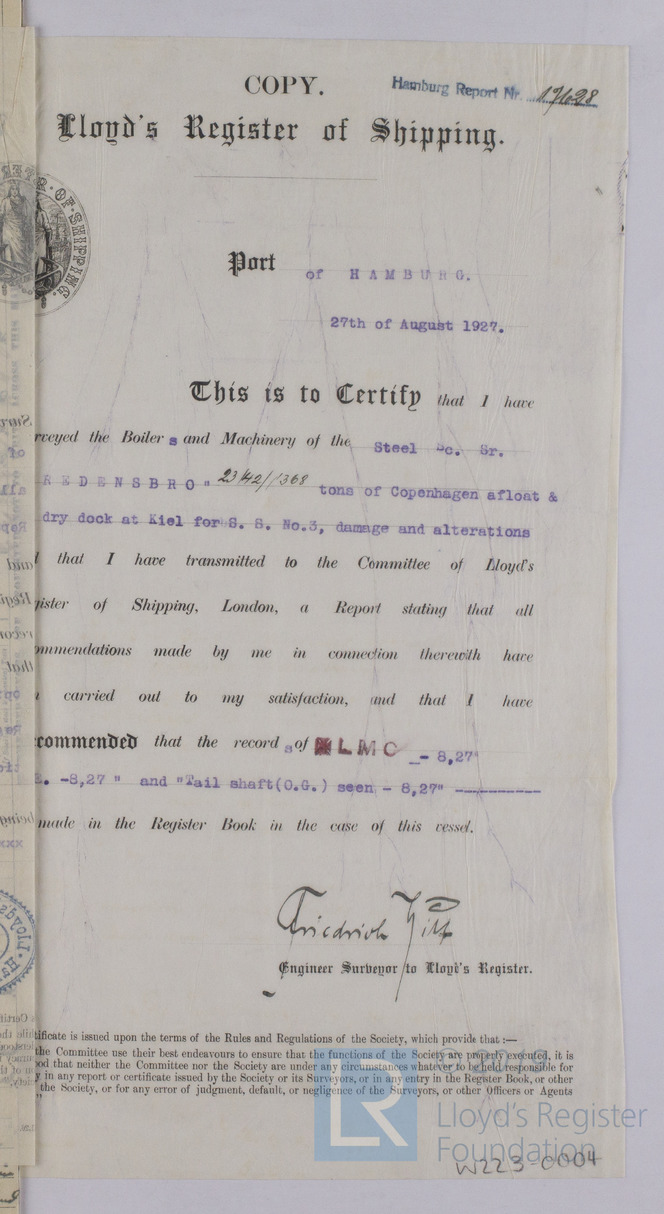 COPY.
Hamburg Report Nr. 17628
Lloyd's Register of Shipping.
Port of HAMBURG.
27th of August 1927.
This is to Certify that I have
rveyed the Boilers and Machinery of the Steel Sc. Sr.
REDENSBRO" 2342//1368 tons of Copenhagen afloat &
dry dock at Kiel for S. S. No.3, damage and alterations
that I have transmitted to the Committee of Lloyd's
gister of Shipping, London, a Report stating that all
ommendations made by me in connection therewith have
carried out to my satisfaction, and that I have
commended that the records of LMC - 8,27"
. -8,27 " and "Tail shaft(O.G.) seen - 8,27" ----------
made in the Register Book in the case of this vessel.
Friedrich
Engineer Surveyor to Lloyd's Register.
tificate is issued upon the terms of the Rules and Regulations of the Society, which provide that :—
the Committee use their best endeavours to ensure that the functions of the Society are properly executed, it is
ood that neither the Committee nor the Society are under any circumstances whatever to be held responsible for
y in any report or certificate issued by the Society or its Surveyors, or in any entry in the Register Book, or other
the Society, or for any error of judgment, default, or negligence of the Surveyors, or other Officers or Agents
LR
Lloyd's Register
Foundation
W223-0004